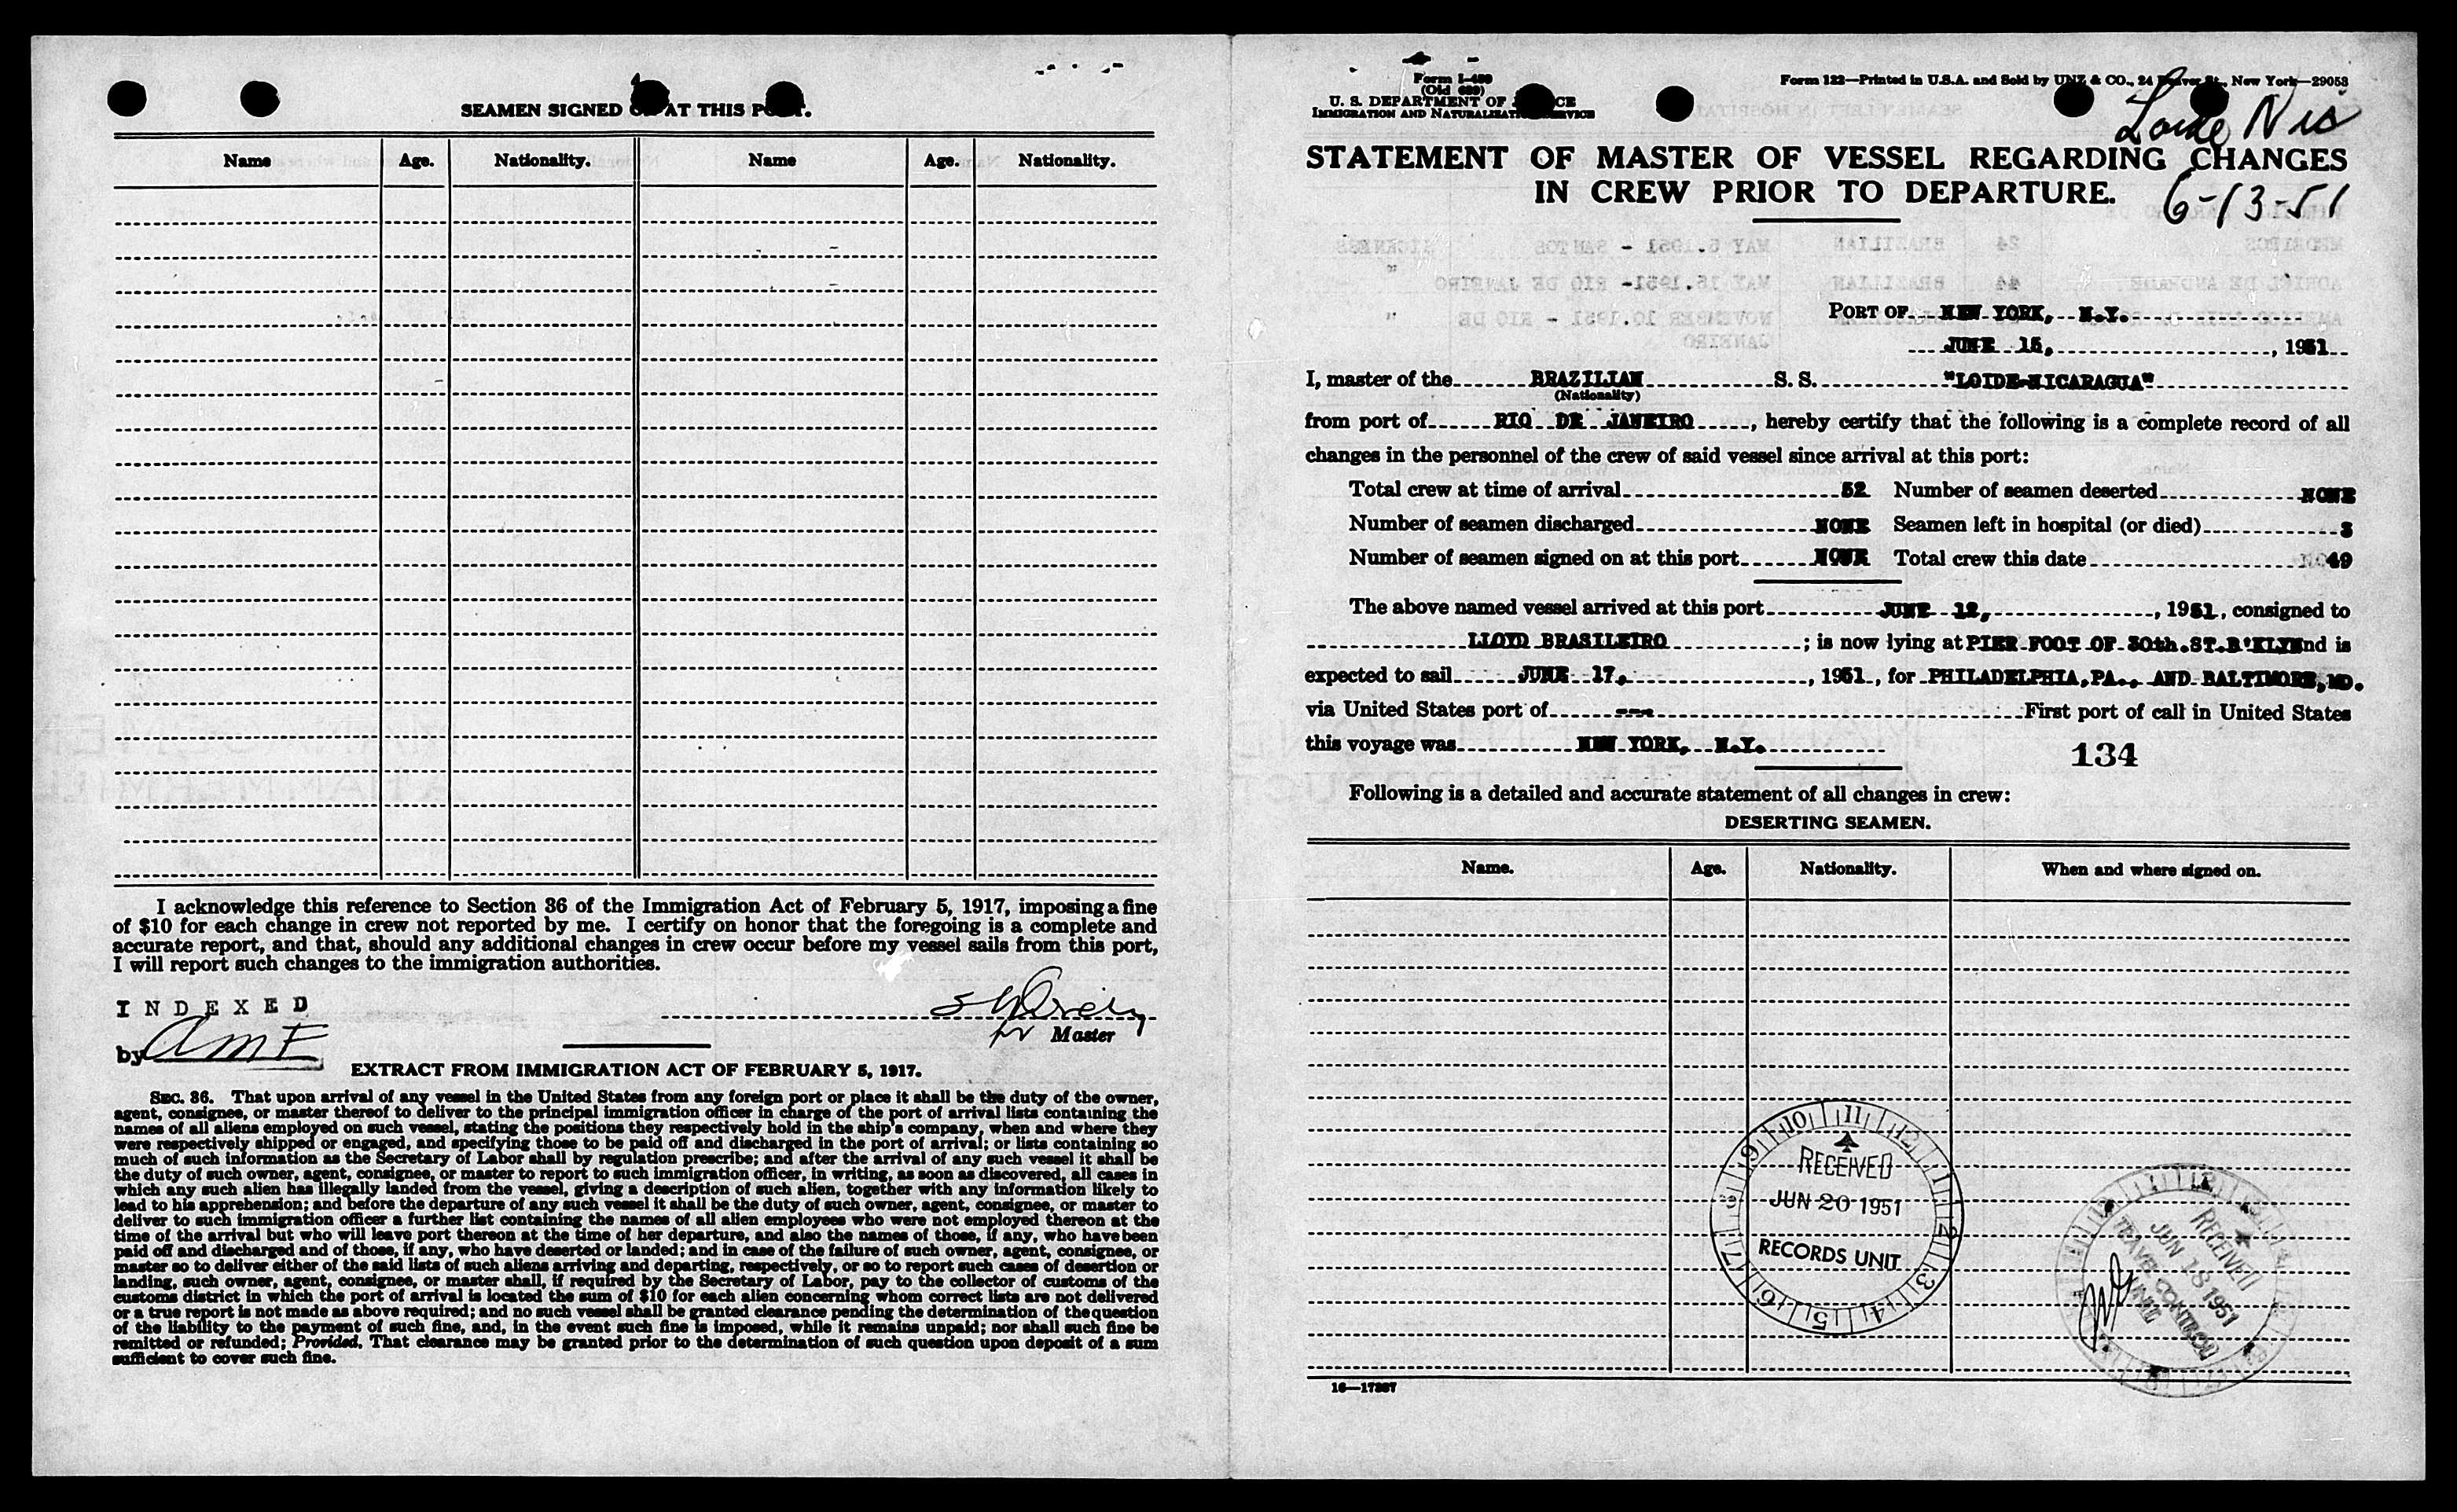 SEAMEN SIGNED AT THIS
Name Age. Nationality. Name Age. Nationality.
I acknowledge this reference to Section 36 of the Immigration Act of February 5, 1917, imposing a fine
of $10 for each change in crew not reported by me. I certify on honor that the foregoing is a complete and
accurate report, and that, should any additional changes in crew occur before my vessel sails from this port,
I will report such changes to the immigration authorities.
INDEXED
by AMF
Master
EXTRACT FROM IMMIGRATION ACT OF FEBRUARY 5, 1917.
SEC. 36. That upon arrival of any vessel in the United States from any foreign port or place it shall be the duty of the owner,
agent, consignee, or master thereof to deliver to the principal immigration officer in charge of the port of arrival lists containing the
names of all aliens employed on such vessel, stating the positions they respectively hold in the ship's company, when and where they
were respectively shipped or engaged, and specifying those to be paid off and discharged in the port of arrival; or lists containing so
much of such information as the Secretary of Labor shall by regulation prescribe; and after the arrival of any such vessel it shall be
the duty of such owner, agent, consignee, or master to report to such immigration officer, in writing, as soon as discovered, all cases in
which any such alien has illegally landed from the vessel, giving a description of such alien, together with any information likely to
lead to his apprehension; and before the departure of any such vessel it shall be the duty of such owner, agent, consignee, or master to
deliver to such immigration officer a further list containing the names of all alien employees who were not employed thereon at the
time of the arrival but who will leave port thereon at the time of her departure, and also the names of those, if any, who have been
paid off and discharged and of those, if any, who have deserted or landed; and in case of the failure of such owner, agent, consignee, or
master so to deliver either of the said lists of such aliens arriving and departing, respectively, or so to report such cases of desertion or
landing, such owner, agent, consignee, or master shall, if required by the Secretary of Labor, pay to the collector of customs of the
customs district in which the port of arrival is located the sum of $10 for each alien concerning whom correct lists are not delivered
or a true report is not made as above required; and no such vessel shall be granted clearance pending the determination of the question
of the liability to the payment of such fine, and, in the event such fine is imposed, while it remains unpaid; nor shall such fine be
remitted or refunded; Provided, That clearance may be granted prior to the determination of such question upon deposit of a sum
sufficient to cover such fine.
Form I-489
(Old 689)
U. S. DEPARTMENT OF JUSTICE
IMMIGRATION AND NATURALIZATION SERVICE
Form 122—Printed in U.S.A. and Sold by UNZ & CO., 24 Beaver St., New York—29053
Loide Nis
STATEMENT OF MASTER OF VESSEL REGARDING CHANGES
IN CREW PRIOR TO DEPARTURE.
6-13-51
PORT OF NEW YORK, N.Y.
JUNE 15, 1951
I, master of the BRAZILIAN S. S. "LOIDE-NICARAGUA"
(Nationality)
from port of RIO DE JANEIRO, hereby certify that the following is a complete record of all
changes in the personnel of the crew of said vessel since arrival at this port:
Total crew at time of arrival 52 Number of seamen deserted NONE
Number of seamen discharged NONE Seamen left in hospital (or died) 3
Number of seamen signed on at this port NONE Total crew this date 49
The above named vessel arrived at this port JUNE 12, 1951, consigned to
LLOYD BRASILEIRO ; is now lying at PIER FOOT OF 30th.ST.B'KLYN nd is
expected to sail JUNE 17, 1951, for PHILADELPHIA,PA., AND BALTIMORE,MD.
via United States port of --- First port of call in United States
this voyage was NEW YORK, N.Y.
134
Following is a detailed and accurate statement of all changes in crew:
DESERTING SEAMEN.
Name. Age. Nationality. When and where signed on.
RECEIVED
JUN 20 1951
RECORDS UNIT
RECEIVED
JUN 18 1951
TRAVEL CONTROL
UNIT
16—17397